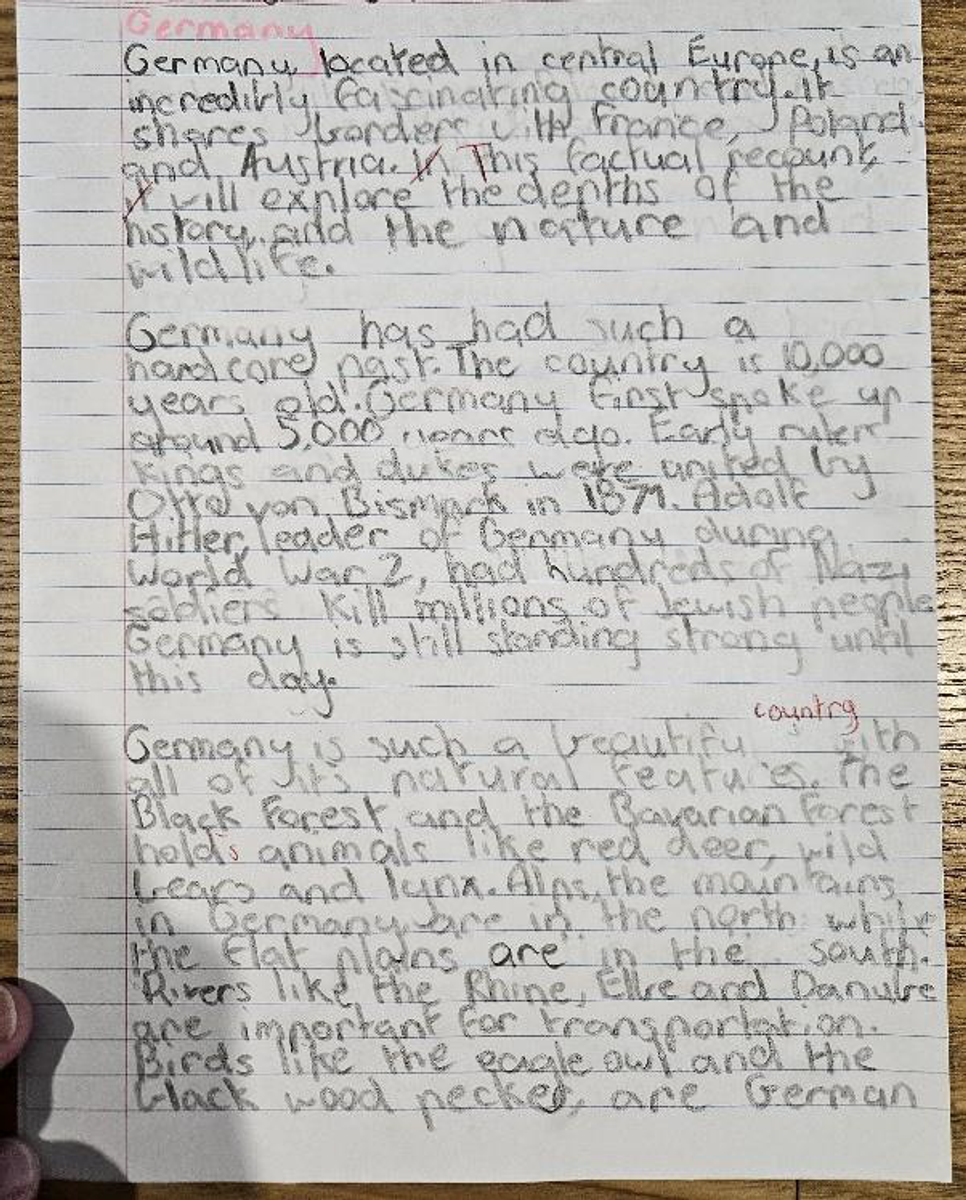 Germany
Germany, located in central Europe, is an
incredibly fascinating country. It
shares borders with France, Poland
and Austria. This factual recount,
will explore the depths of the
history, and the nature and
wildlife.
Germany has had such a
hardcore past. The country is 10,000
years old. Germany first spoke up
around 5,000 years ago. Early rulers
kings and dukes were united by
Otto von Bismark in 1871. Adolf
Hitler, leader of Germany during
World War 2, had hundreds of Nazi
soldiers kill millions of Jewish people
Germany is still standing strong until
this day.
country
Germany is such a beautifu with
all of its natural features. The
Black Forest and the Bavarian Forest
holds animals like red deer, wild
bears and lynx. Alps, the mountains
in Germany are in the north while
the flat plains are in the south.
Rivers like the Rhine, Elbe and Danube
are important for transportation.
Birds like the eagle owl and the
black wood pecker, are German